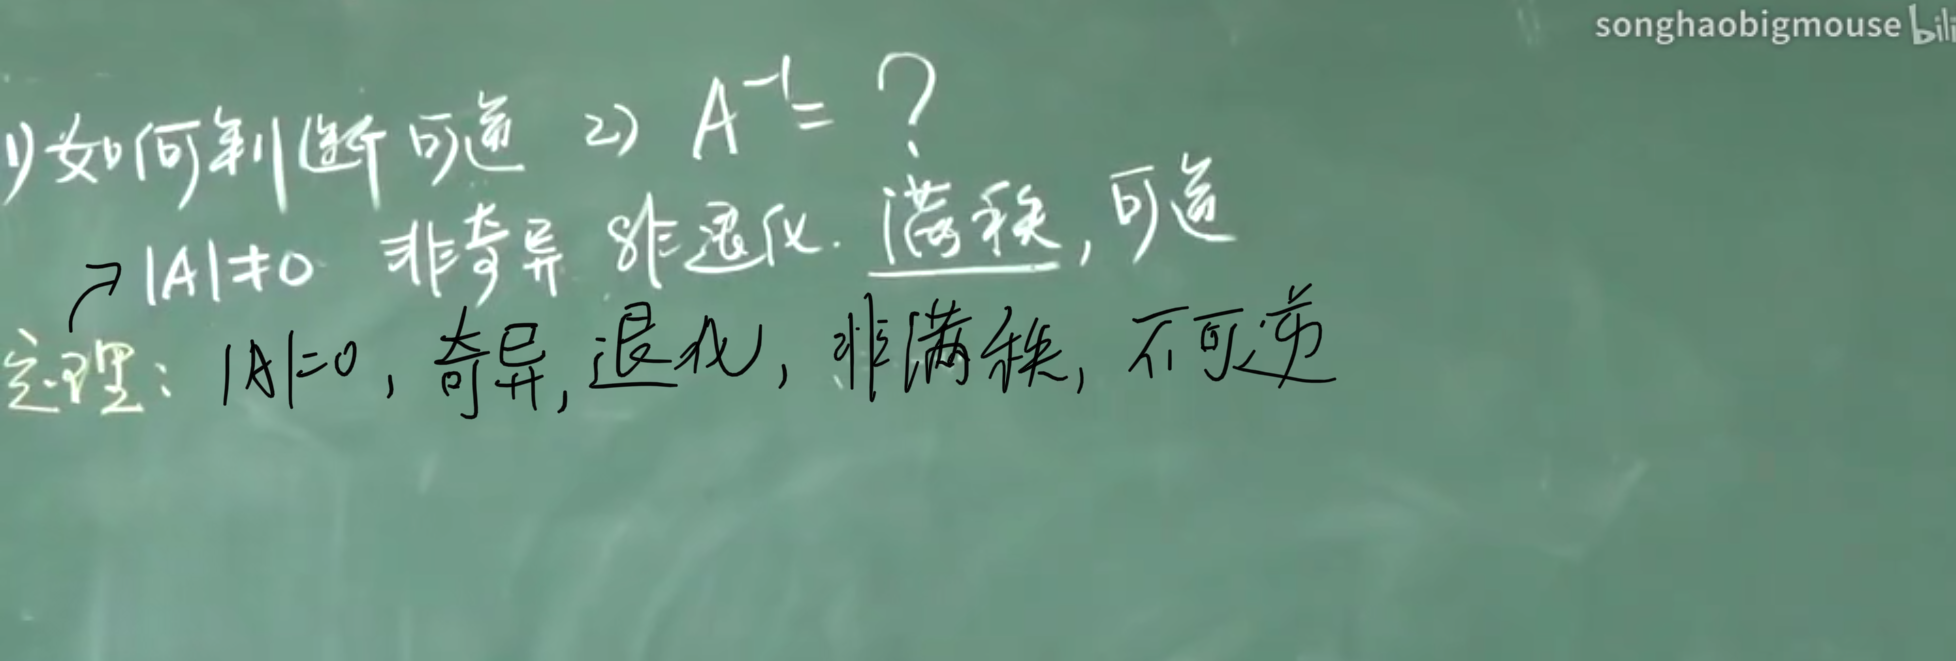 songhaobigmouse bili
1) 如何判断可逆 2) A⁻¹= ?
|A|≠0 非奇异 非退化. 满秩, 可逆
定理: |A|=0, 奇异, 退化, 非满秩, 不可逆